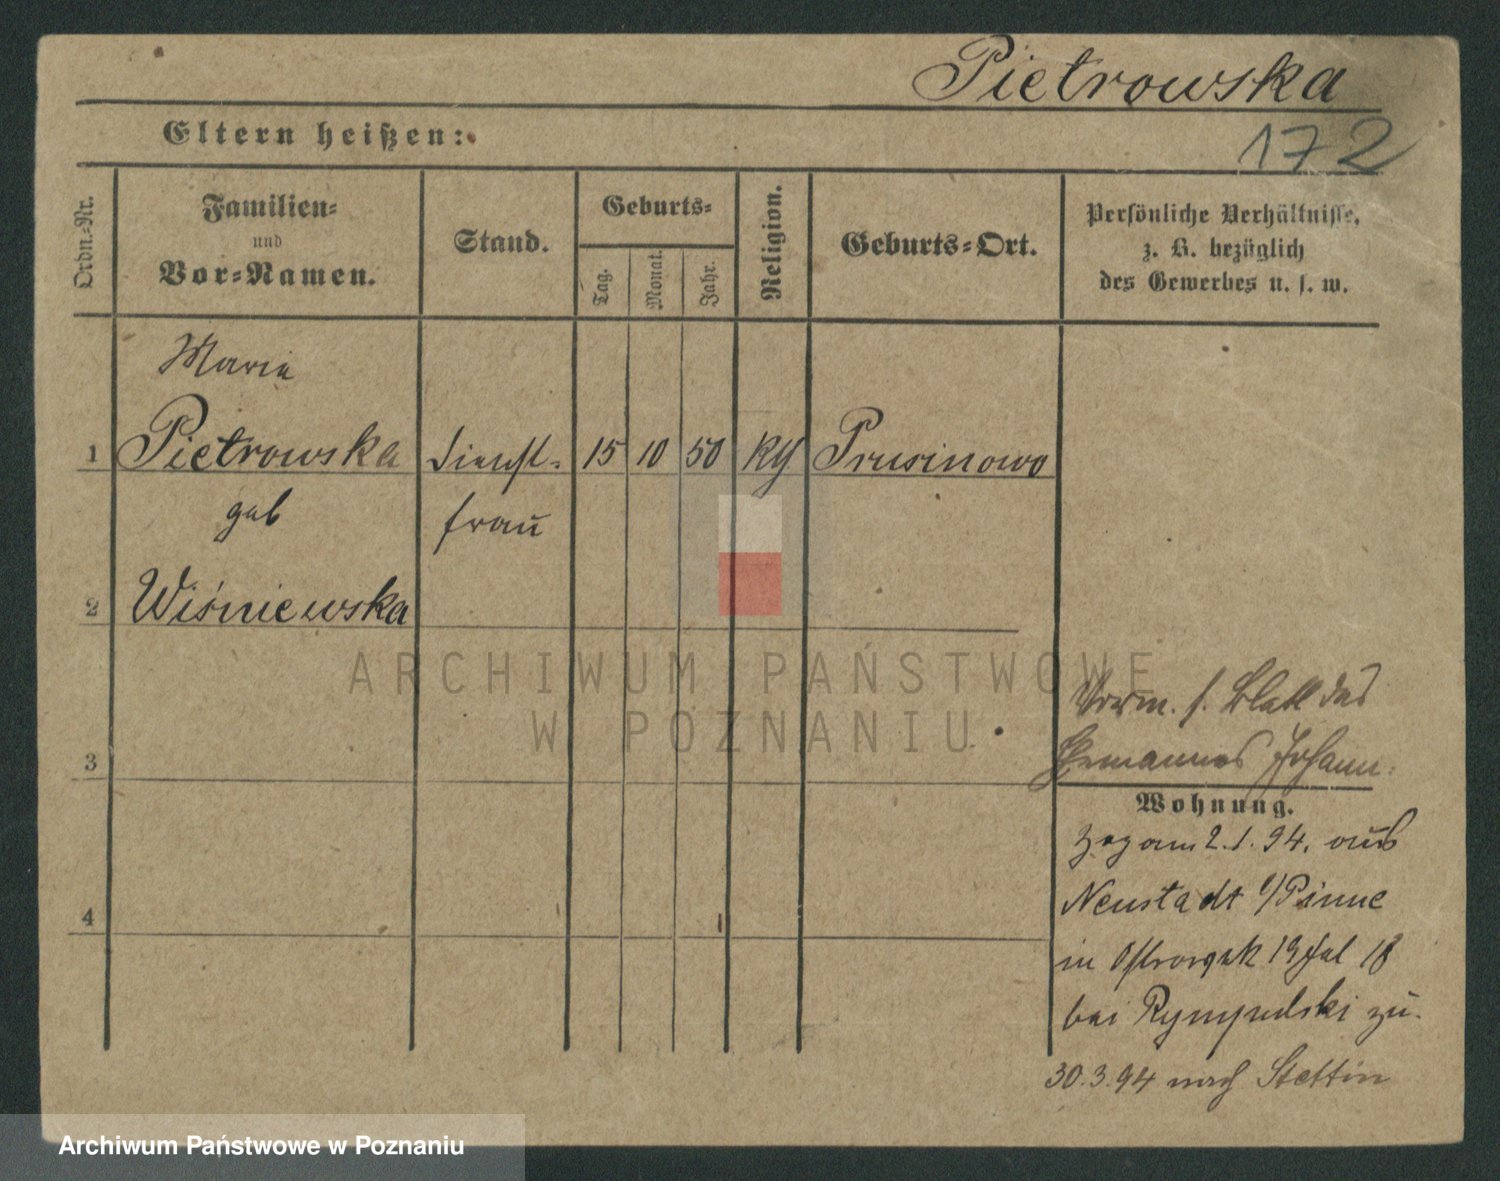 Pietrowska
Eltern heißen:
172
Ordn.-Nr.
Familien-
und
Vor-Namen.
Stand.
Geburts-
Tag.
Monat.
Jahr.
Religion.
Geburts-Ort.
Persönliche Verhältnisse,
z. B. bezüglich
des Gewerbes u. s. w.
Maria
1 Pietrowska Dienst- 15 10 50 Prusinowo
geb frau
2 Wiśniewska
3
4
ARCHIWUM PAŃSTWOWE
W POZNANIU
Verm. s. Blatt des
Ehemannes Johann.
Wohnung.
zog am 2.1.94. aus
Neustadt b/Pinne
in 19
bei zu.
30.3.94 nach Stettin
Archiwum Państwowe w Poznaniu